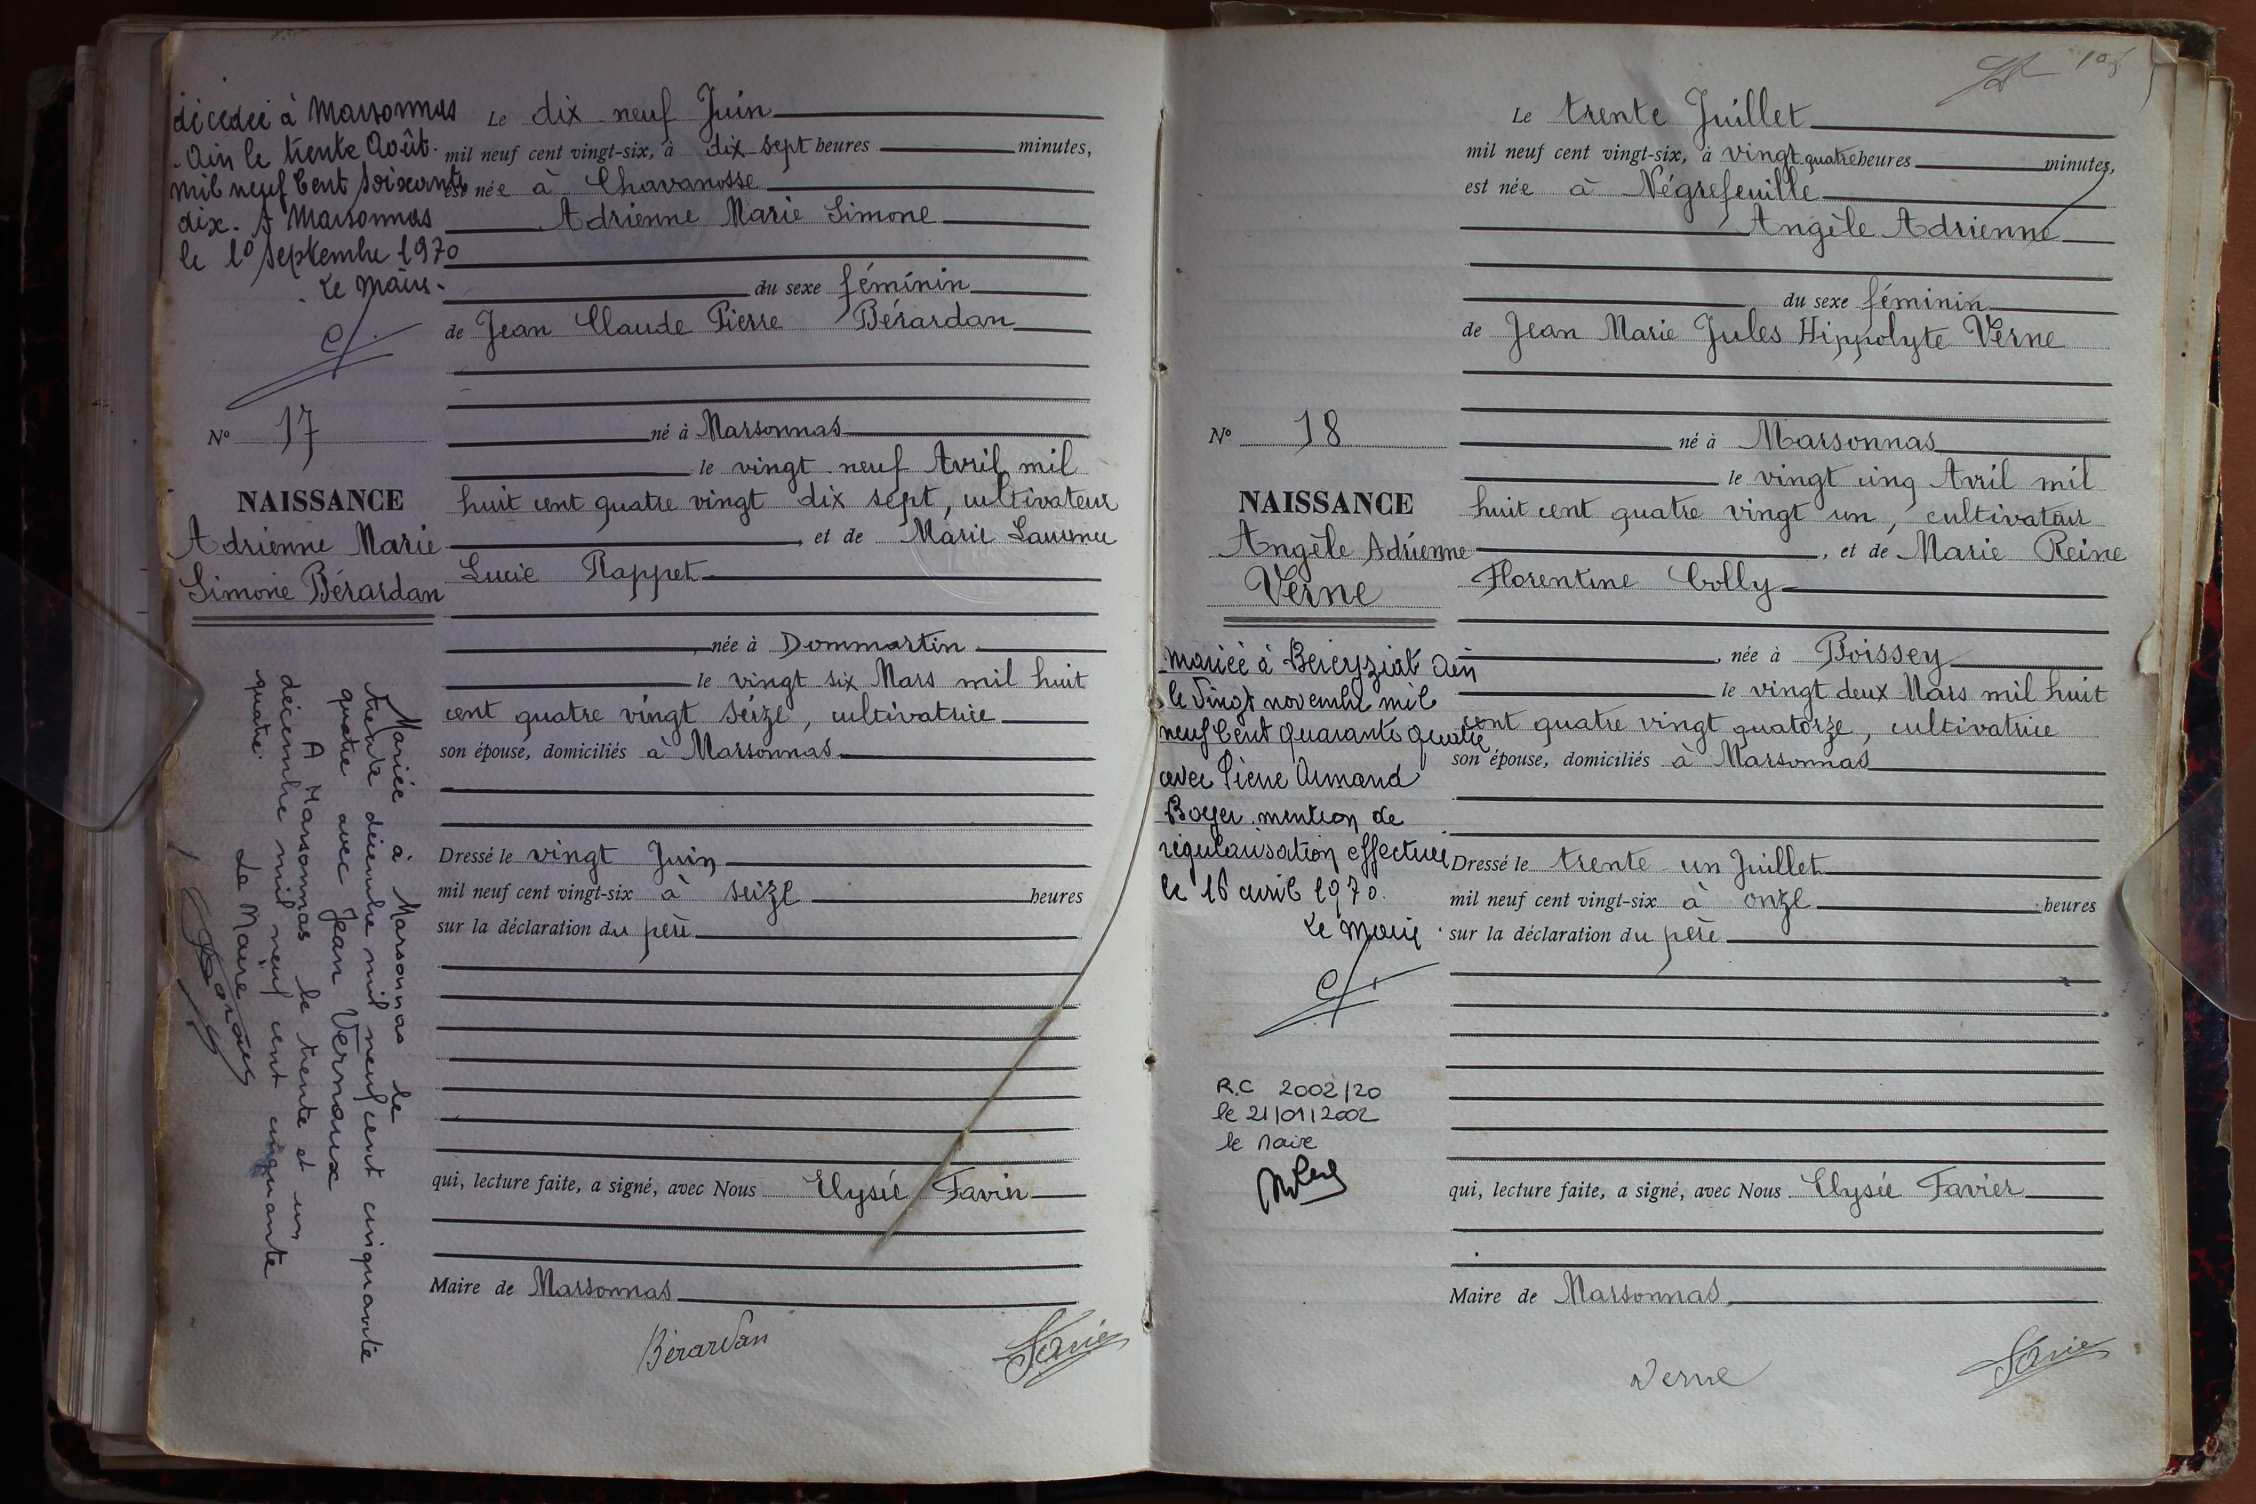 décédée à Marsonnas
Ain le trente Août
mil neuf cent soixante
dix. A Marsonnas
le 1º septembre 1970
Le Maire.
Nº 17
NAISSANCE
Adrienne Marie
Simone Bérardan
Mariée à Marsonnas le
trente décembre mil neuf cent cinquante
quatre avec Jean Vernoux
A Marsonnas le trente et un
décembre mil neuf cent cinquante
quatre.
Le Maire
Le dix neuf Juin
mil neuf cent vingt-six, à dix sept heures minutes,
est née à Chavanosse
Adrienne Marie Simone
du sexe féminin
de Jean Claude Pierre Bérardan
né à Marsonnas
le vingt neuf Avril mil
huit cent quatre vingt dix sept, cultivateur
, et de Marie Laurence
Lucie Rappet
, née à Dommartin
le vingt six Mars mil huit
cent quatre vingt seize, cultivatrice
son épouse, domiciliés à Marsonnas
Dressé le vingt Juin
mil neuf cent vingt-six à seize heures
sur la déclaration du père
qui, lecture faite, a signé, avec Nous Elysée Favier
Maire de Marsonnas
Bérardan
Favier
Le trente Juillet
mil neuf cent vingt-six, à vingt quatre heures minutes,
est née à Négrefeuille
Angèle Adrienne
du sexe féminin
de Jean Marie Jules Hippolyte Verne
Nº 18
NAISSANCE
Angèle Adrienne
Verne
mariée à Béréyziat Ain
le vingt novembre mil
neuf cent quarante quatre
avec Pierre Armand
Boyer. mention de
régularisation effectuée
le 16 avril 1970.
Le Maire
R.C 2002/20
le 21/01/2002
le Maire
né à Marsonnas
le vingt cinq Avril mil
huit cent quatre vingt un, cultivateur
, et de Marie Reine
Florentine Colly
, née à Boissey
le vingt deux Mars mil huit
cent quatre vingt quatorze, cultivatrice
son épouse, domiciliés à Marsonnas
Dressé le trente un Juillet
mil neuf cent vingt-six à onze heures
sur la déclaration du père
qui, lecture faite, a signé, avec Nous Elysée Favier
Maire de Marsonnas
Verne
Favier